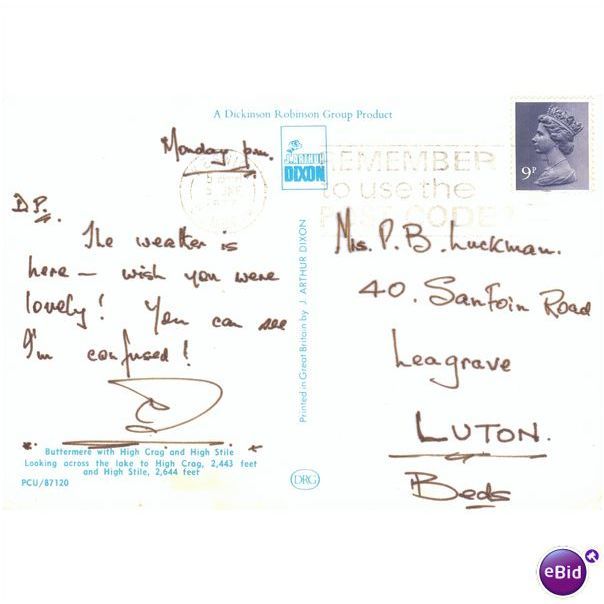 A Dickinson Robinson Group Product
Monday p.m.
J. ARTHUR
DIXON
REMEMBER
to use the
POST CODE
9P
D P.
The weather is
here – wish you were
lovely! You can see
I'm confused!
Mrs. P. B. Luckman.
40. Sanfoin Road
Leagrave
LUTON.
Beds
Printed in Great Britain by J. ARTHUR DIXON
Buttermere with High Crag and High Stile
Looking across the lake to High Crag, 2,443 feet
and High Stile, 2,644 feet
PCU/87120
DRG
eBid